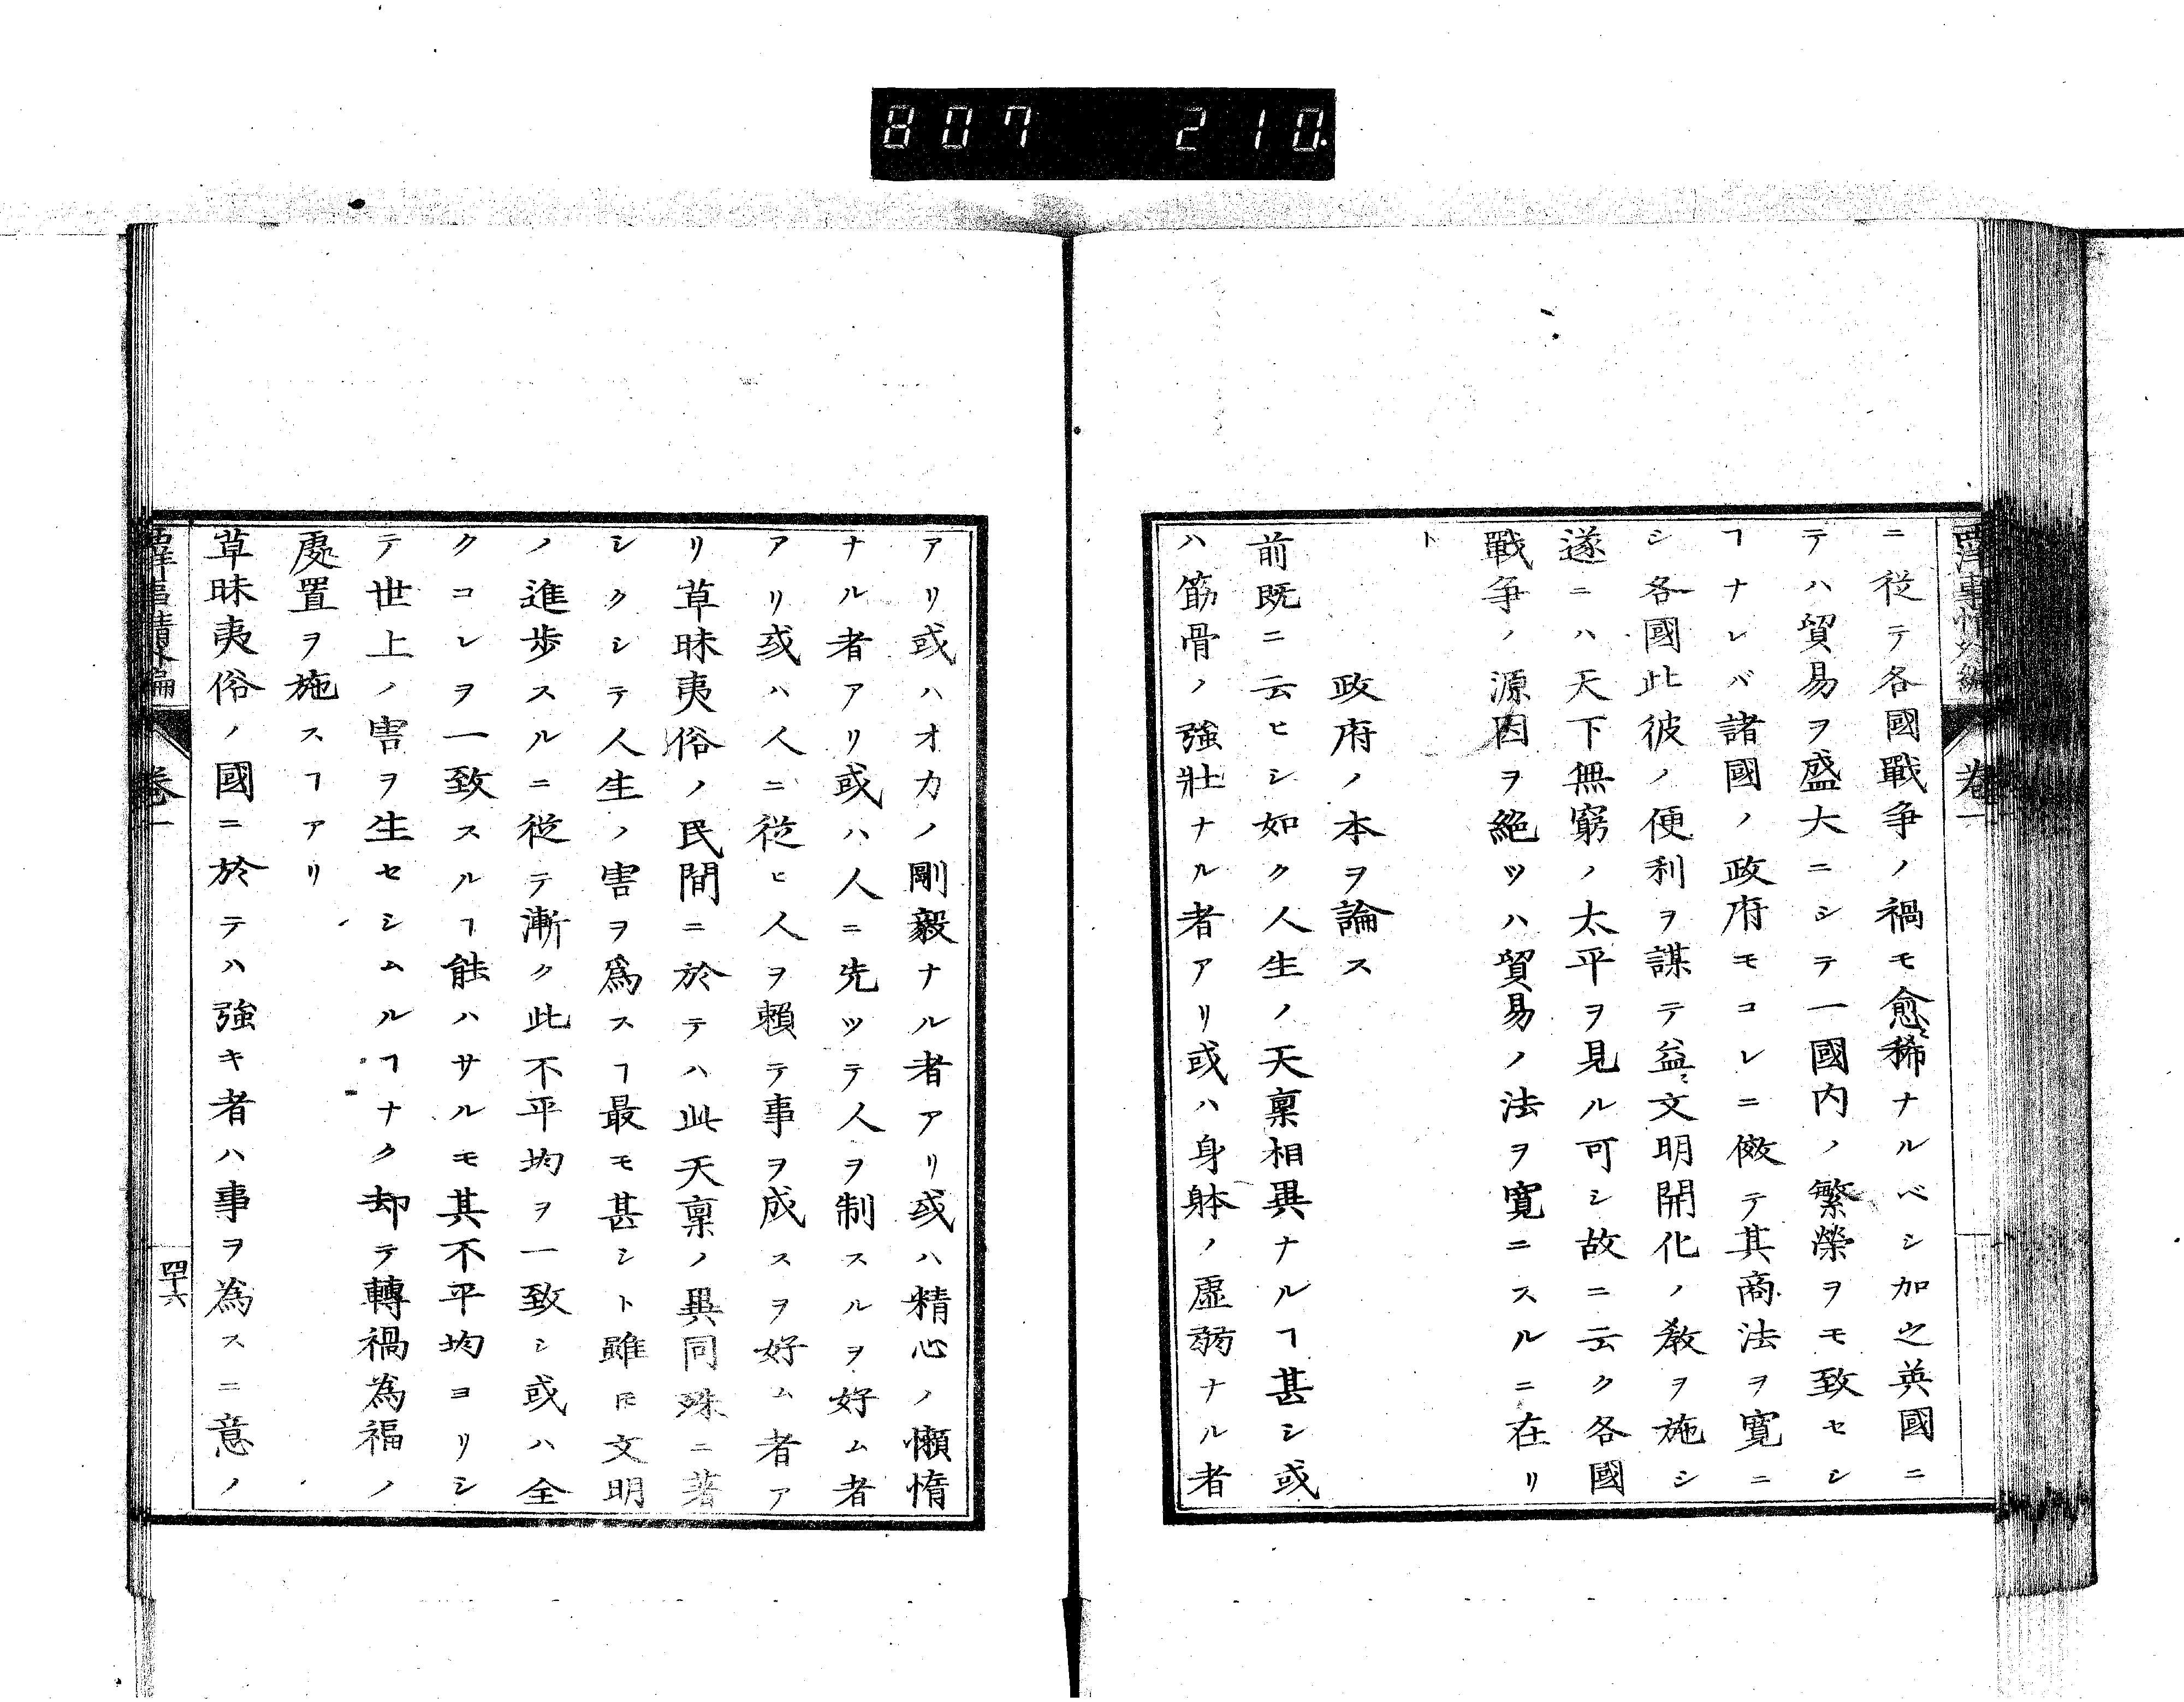 807 210.
西洋事情外編 卷一
ニ從テ各國戰爭ノ禍モ愈〻稀ナルベシ加之英國ニ
テハ貿易ヲ盛大ニシテ一國内ノ繁榮ヲモ致セシ
ヿナレバ諸國ノ政府モコレニ傚テ其商法ヲ寛ニ
シ各國此彼ノ便利ヲ謀テ益〻文明開化ノ教ヲ施シ
遂ニハ天下無窮ノ太平ヲ見ル可シ故ニ云ク各國
戰爭ノ源因ヲ絶ツハ貿易ノ法ヲ寛ニスルニ在リ
ト
政府ノ本ヲ論ス
前既ニ云ヒシ如ク人生ノ天稟相異ナルヿ甚シ或
ハ筋骨ノ強壯ナル者アリ或ハ身躰ノ虚弱ナル者
アリ或ハオカノ剛毅ナル者アリ或ハ精心ノ懶惰
ナル者アリ或ハ人ニ先ツテ人ヲ制スルヲ好ム者
アリ或ハ人ニ從ヒ人ヲ頼テ事ヲ成スヲ好ム者ア
リ草昧夷俗ノ民間ニ於テハ此天稟ノ異同殊ニ著
シクシテ人生ノ害ヲ爲スヿ最モ甚シト雖𪜈文明
ノ進歩スルニ從テ漸ク此不平均ヲ一致シ或ハ全
クコレヲ一致スルヿ能ハサルモ其不平均ヨリシ
テ世上ノ害ヲ生セシムルヿナク却テ轉禍為福ノ
處置ヲ施スヿアリ
草昧夷俗ノ國ニ於テハ強キ者ハ事ヲ為スニ意ノ
西洋事情外編 卷一 四十六